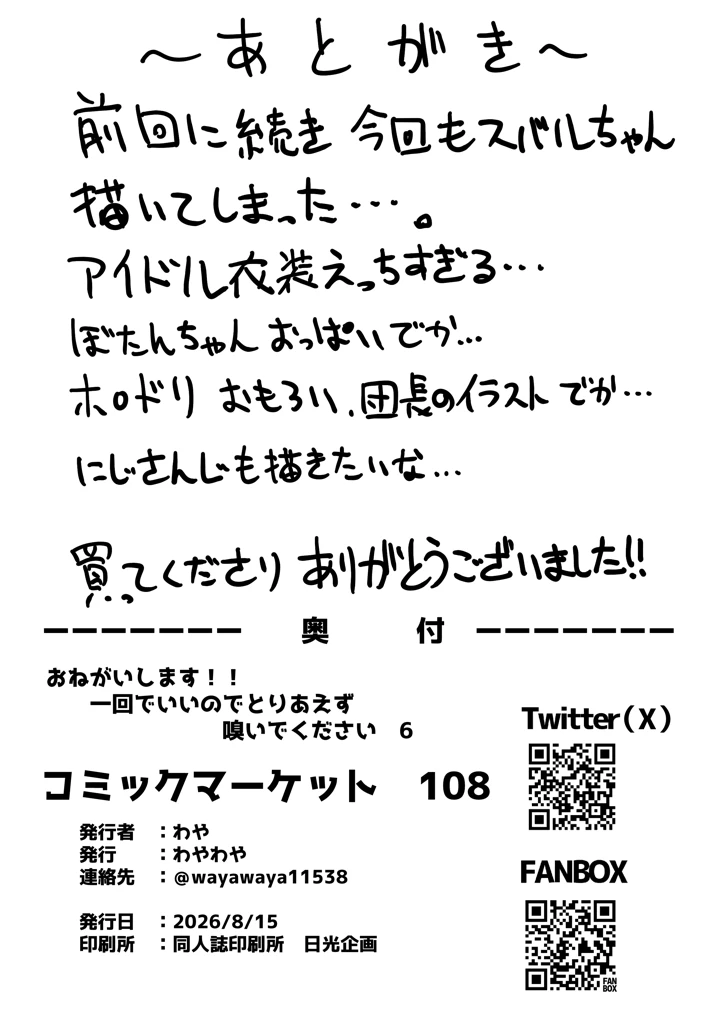 ～あとがき～
前回に続き 今回もスバルちゃん
描いてしまった…。
アイドル衣装えっちすぎる…
ぼたんちゃん おっぱいでか…
ホロドリ おもろい、団長のイラストでか…
にじさんじも描きたいな…
買ってくださり ありがとうございました!!
ーーーーーーー 奥 付 ーーーーーーー
おねがいします！！
一回でいいのでとりあえず
嗅いでください 6
Twitter(X)
コミックマーケット 108
発行者 ：わや
発行 ：わやわや
連絡先 ：@wayawaya11538
FANBOX
発行日 ：2026/8/15
印刷所 ：同人誌印刷所 日光企画
FAN
BOX